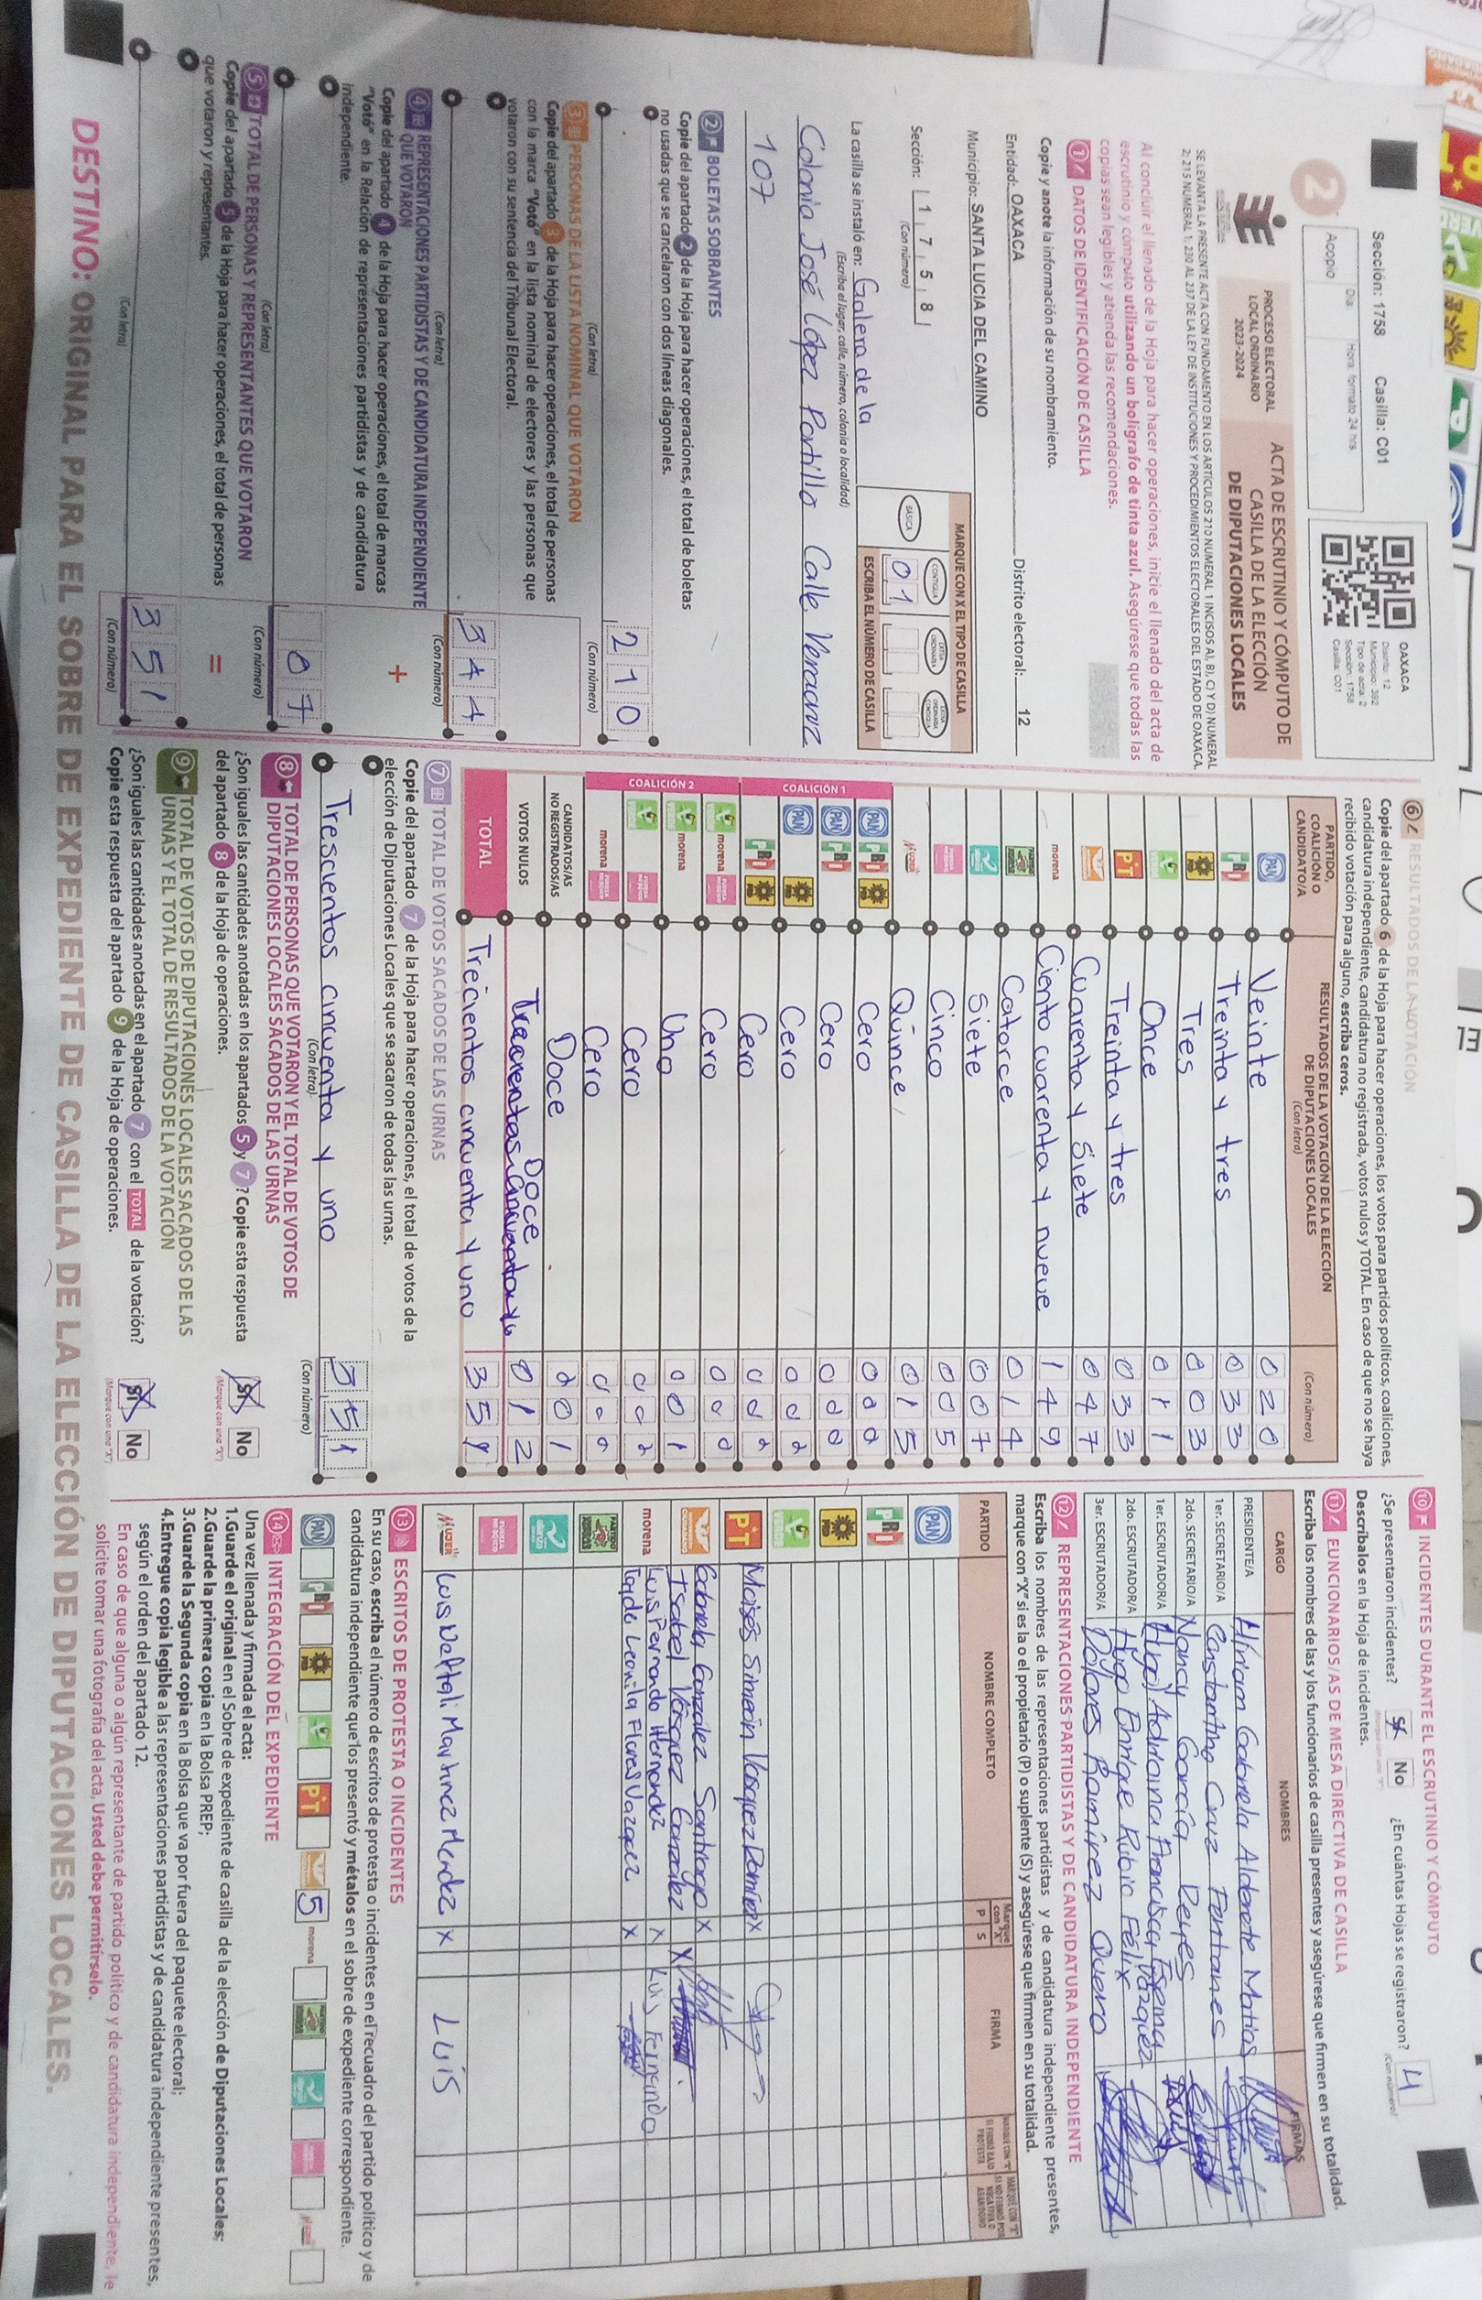 Sección: 1758 Casilla: C01
Día Hora formato 24 hrs
Acopio
OAXACA
Distrito: 12
Municipio: 392
Tipo de acta: 2
Sección: 1758
Casilla: C01
2
PROCESO ELECTORAL
LOCAL ORDINARIO
2023-2024
ACTA DE ESCRUTINIO Y CÓMPUTO DE
CASILLA DE LA ELECCIÓN
DE DIPUTACIONES LOCALES
SE LEVANTA LA PRESENTE ACTA CON FUNDAMENTO EN LOS ARTÍCULOS 210 NUMERAL 1 INCISOS A), B), C) Y D) NUMERAL
2; 215 NUMERAL 1; 230 AL 237 DE LA LEY DE INSTITUCIONES Y PROCEDIMIENTOS ELECTORALES DEL ESTADO DE OAXACA.
Al concluir el llenado de la Hoja para hacer operaciones, inicie el llenado del acta de
escrutinio y cómputo utilizando un bolígrafo de tinta azul. Asegúrese que todas las
copias sean legibles y atienda las recomendaciones.
1 DATOS DE IDENTIFICACIÓN DE CASILLA
Copie y anote la información de su nombramiento.
Entidad: OAXACA Distrito electoral: 12
Municipio: SANTA LUCIA DEL CAMINO
Sección: 1 7 5 8
(Con número)
MARQUE CON X EL TIPO DE CASILLA
BÁSICA CONTIGUA EXTRA ORDINARIA EXTRA ORDINARIA CONTIGUA
0 1
ESCRIBA EL NÚMERO DE CASILLA
La casilla se instaló en: Galera de la
(Escriba el lugar, calle, número, colonia o localidad)
Colonia José López Portillo Calle Veracruz
107
2 BOLETAS SOBRANTES
Copie del apartado 2 de la Hoja para hacer operaciones, el total de boletas
no usadas que se cancelaron con dos líneas diagonales.
2 1 0
(Con letra) (Con número)
3 PERSONAS DE LA LISTA NOMINAL QUE VOTARON
Copie del apartado 3 de la Hoja para hacer operaciones, el total de personas
con la marca "Votó" en la lista nominal de electores y las personas que
votaron con su sentencia del Tribunal Electoral.
3 4 4
(Con letra) (Con número)
4 REPRESENTACIONES PARTIDISTAS Y DE CANDIDATURA INDEPENDIENTE
QUE VOTARON
+
Copie del apartado 4 de la Hoja para hacer operaciones, el total de marcas
"Votó" en la Relación de representaciones partidistas y de candidatura
independiente.
0 7
(Con letra) (Con número)
5 TOTAL DE PERSONAS Y REPRESENTANTES QUE VOTARON
=
Copie del apartado 5 de la Hoja para hacer operaciones, el total de personas
que votaron y representantes.
3 5 1
(Con letra) (Con número)
6 RESULTADOS DE LA VOTACIÓN
Copie del apartado 6 de la Hoja para hacer operaciones, los votos para partidos políticos, coaliciones,
candidatura independiente, candidatura no registrada, votos nulos y TOTAL. En caso de que no se haya
recibido votación para alguno, escriba ceros.
PARTIDO,
COALICIÓN O
CANDIDATO/A
RESULTADOS DE LA VOTACIÓN DE LA ELECCIÓN
DE DIPUTACIONES LOCALES
(Con letra)
(Con número)
PAN Veinte 0 2 0
PRI Treinta y tres 0 3 3
PRD Tres 0 0 3
VERDE Once 0 1 1
PT Treinta y tres 0 3 3
Cuarenta y siete 0 4 7
morena Ciento cuarenta y nueve 1 4 9
Catorce 0 1 4
Siete 0 0 7
Cinco 0 0 5
MUJER Quince 0 1 5
COALICIÓN 1
PAN PRI PRD Cero 0 0 0
PAN PRI Cero 0 0 0
PAN PRD Cero 0 0 0
PRI PRD Cero 0 0 0
COALICIÓN 2
VERDE morena FUERZA Cero 0 0 0
VERDE morena Uno 0 0 1
VERDE FUERZA Cero 0 0 0
morena FUERZA Cero 0 0 0
CANDIDATOS/AS
NO REGISTRADOS/AS Doce 2 0 1
VOTOS NULOS Doce 0 1 2
TOTAL Trecientos cincuenta y uno 3 5 1
7 TOTAL DE VOTOS SACADOS DE LAS URNAS
Copie del apartado 7 de la Hoja para hacer operaciones, el total de votos de la
elección de Diputaciones Locales que se sacaron de todas las urnas.
Trescientos cincuenta y uno 3 5 1
(Con letra) (Con número)
8 TOTAL DE PERSONAS QUE VOTARON Y EL TOTAL DE VOTOS DE
DIPUTACIONES LOCALES SACADOS DE LAS URNAS
¿Son iguales las cantidades anotadas en los apartados 5 y 7? Copie esta respuesta
del apartado 8 de la Hoja de operaciones.
Sí No
(Marque con una "X")
9 TOTAL DE VOTOS DE DIPUTACIONES LOCALES SACADOS DE LAS
URNAS Y EL TOTAL DE RESULTADOS DE LA VOTACIÓN
¿Son iguales las cantidades anotadas en el apartado 7 con el TOTAL de la votación?
Copie esta respuesta del apartado 9 de la Hoja de operaciones.
Sí No
(Marque con una "X")
10 INCIDENTES DURANTE EL ESCRUTINIO Y CÓMPUTO
¿Se presentaron incidentes? Sí No ¿En cuántas Hojas se registraron? 4
(Con número)
Descríbalos en la Hoja de incidentes.
11 FUNCIONARIOS/AS DE MESA DIRECTIVA DE CASILLA
Escriba los nombres de las y los funcionarios de casilla presentes y asegúrese que firmen en su totalidad.
CARGO NOMBRES FIRMAS
PRESIDENTE/A Miriam Gabriela Alderete Matias
1er. SECRETARIO/A Constantino Cruz Fontanes
2do. SECRETARIO/A Nancy García Reyes
1er. ESCRUTADOR/A Adriana Francisca Vásquez
2do. ESCRUTADOR/A Hugo Enrique Rubio Félix
3er. ESCRUTADOR/A Dolores Ramírez Quero
12 REPRESENTACIONES PARTIDISTAS Y DE CANDIDATURA INDEPENDIENTE
Escriba los nombres de las representaciones partidistas y de candidatura independiente presentes,
marque con "X" si es la o el propietario (P) o suplente (S) y asegúrese que firmen en su totalidad.
PARTIDO NOMBRE COMPLETO Marque con "X" P S FIRMA MARQUE CON "X" SI FIRMÓ BAJO PROTESTA MARQUE CON "X" SI NO FIRMÓ POR NEGATIVA O ABANDONO
PAN
PRI
PRD
VERDE
PT Moisés Simeón Vasquez Ramírez X
Gabriela González Santiago X
Isabel Vásquez González X
morena Luis Fernando Hernandez X Luis Fernando
Tayde Leonila Flores Vazquez X
MUJER Luis Neftali Martinez Mendez X Luis
13 ESCRITOS DE PROTESTA O INCIDENTES
En su caso, escriba el número de escritos de protesta o incidentes en el recuadro del partido político y de
candidatura independiente que los presentó y métalos en el sobre de expediente correspondiente.
PAN PRI PRD VERDE PT 5 morena
14 INTEGRACIÓN DEL EXPEDIENTE
Una vez llenada y firmada el acta:
1.Guarde el original en el Sobre de expediente de casilla de la elección de Diputaciones Locales;
2.Guarde la primera copia en la Bolsa PREP;
3.Guarde la Segunda copia en la Bolsa que va por fuera del paquete electoral;
4.Entregue copia legible a las representaciones partidistas y de candidatura independiente presentes,
según el orden del apartado 12.
En caso de que alguna o algún representante de partido político y de candidatura independiente, le
solicite tomar una fotografía del acta, Usted debe permitírselo.
DESTINO: ORIGINAL PARA EL SOBRE DE EXPEDIENTE DE CASILLA DE LA ELECCIÓN DE DIPUTACIONES LOCALES.